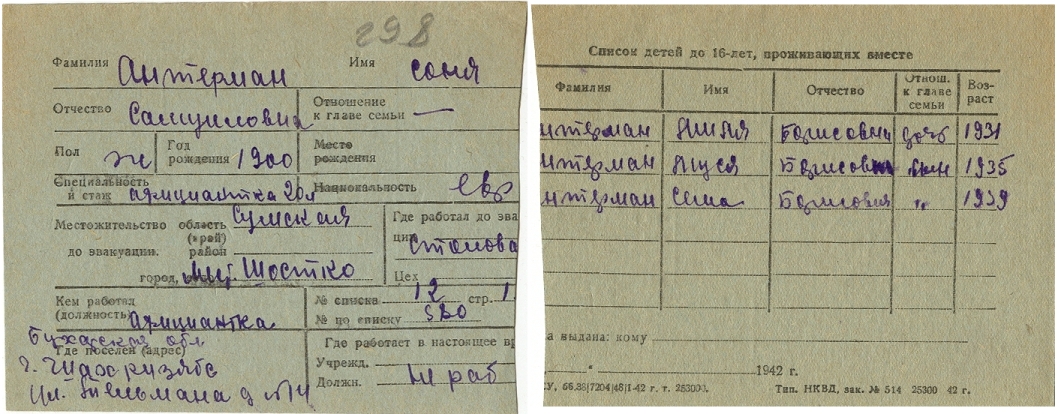 298
Фамилия Антерман Имя Соня
Отчество Самуиловна Отношение к главе семьи —
Пол ж Год рождения 1900 Место рождения
Специальность и стаж официантка 20л Национальность евр
Местожительство до эвакуации. область (край) Сумская
район
город, Шостко
Где работал до эва
ции Столова
Цех
Кем работал (должность) официантка
№ списка 12 стр. 1
№ по списку
Где поселен (адрес) Бухарская обл
г.
ул. Тельмана д №14
Где работает в настоящее вр
Учрежд. Не раб
Должн.
Список детей до 16-лет, проживающих вместе
Фамилия Имя Отчество Отнош. к главе семьи Возраст
нтерман Борисовна дочь 1931
нтерман Яшея Борисович сын 1935
нтерман Сема Борисович " 1939
а выдана: кому
1942 г.
У, 66.28|7204|48|I-42 г. т. 253000. Тип. НКВД, зак. № 514 25300 42 г.